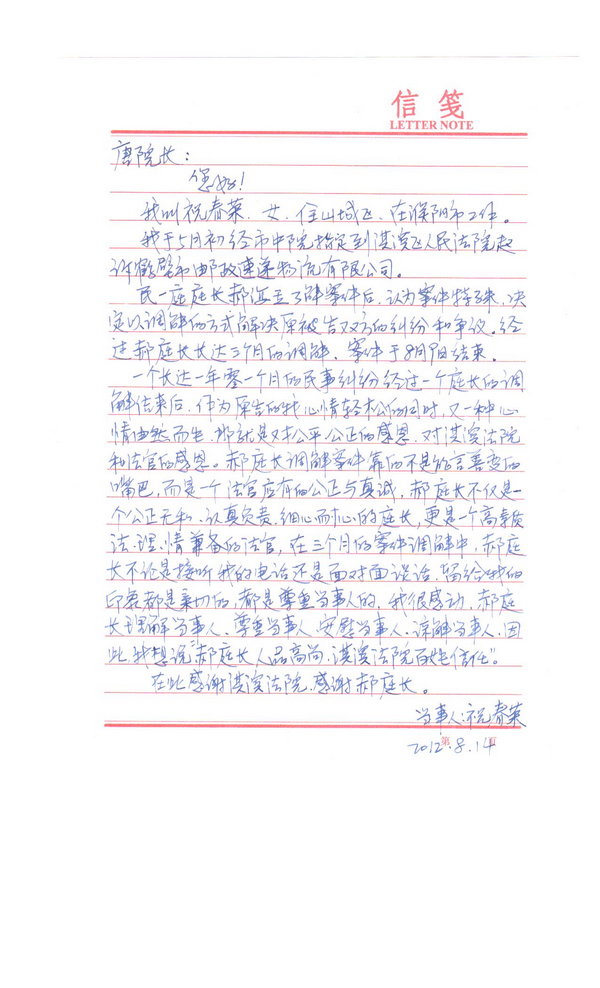 信笺
LETTER NOTE
唐院长：
您好！
我叫祝春英、女、住山城区、在濮阳市工作。
我于5月初经市中院指定到淇滨区人民法院起
诉鹤壁市邮政速递物流有限公司。
民一庭庭长郝立了解案件后，认为案件特殊，决
定以调解的方式解决原被告双方的纠纷和争议。经
过郝庭长长达三个月的调解，案件于8月结束。
一个长达一年零一个月的民事纠纷经过一个庭长的调
解结束后，作为原告的我心情轻松的同时，又一种心
情由然而生，那就是对公平、公正的感恩，对淇滨法院
和法官的感恩。郝庭长调解案件靠的不是能言善变的
嘴巴，而是一个法官应有的公正与真诚，郝庭长不仅是一
个公正无私、认真负责、细心而耐心的庭长，更是一个高素质
法、理、情兼备的法官，在三个月的案件调解中，郝庭
长不论是接听我的电话还是面对面谈话，留给我的
印象都是亲切的，都是尊重当事人的，我很感动，郝庭
长理解当事人、尊重当事人、安慰当事人、谅解当事人，因
此，我想说“郝庭长人品高尚，淇滨法院百姓信任”。
在此感谢淇滨法院、感谢郝庭长。
当事人：祝春英
2012.8.14
第 页